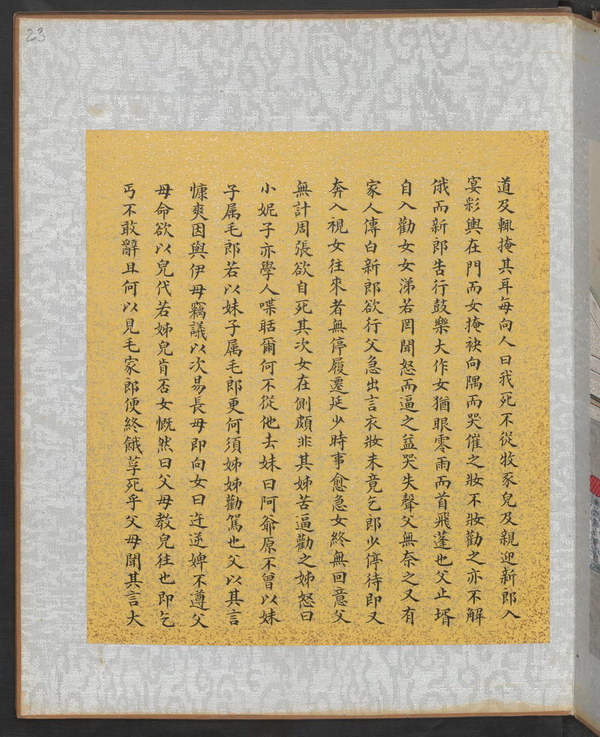 23
道及輒掩其耳每向人曰我死不從牧家兒及親迎新郎入
宴彩輿在門而女掩袂向隅而哭催之妝不妝勸之亦不解
俄而新郎告行鼓樂大作女猶眼零雨而首飛蓬也父止壻
自入勸女女涕若罔聞怒而逼之益哭失聲父無奈之又有
家人傳白新郎欲行父急出言衣妝未竟乞郎少停待即又
奔入視女往來者無停履遷延少時事愈急女終無回意父
無計周張欲自死其次女在側頗非其姊苦逼勸之姊怒曰
小妮子亦學人喋聒爾何不從他去妹曰阿爺原不曾以妹
子属毛郎若以妹子属毛郎更何須姊姊勸駕也父以其言
慷爽因與伊母竊議以次易長母即向女曰迕逆婢不遵父
母命欲以兒代若姊兒肯否女慨然曰父母教兒往也即乞
丐不敢辭且何以見毛家郎便終餓莩死乎父母聞其言大